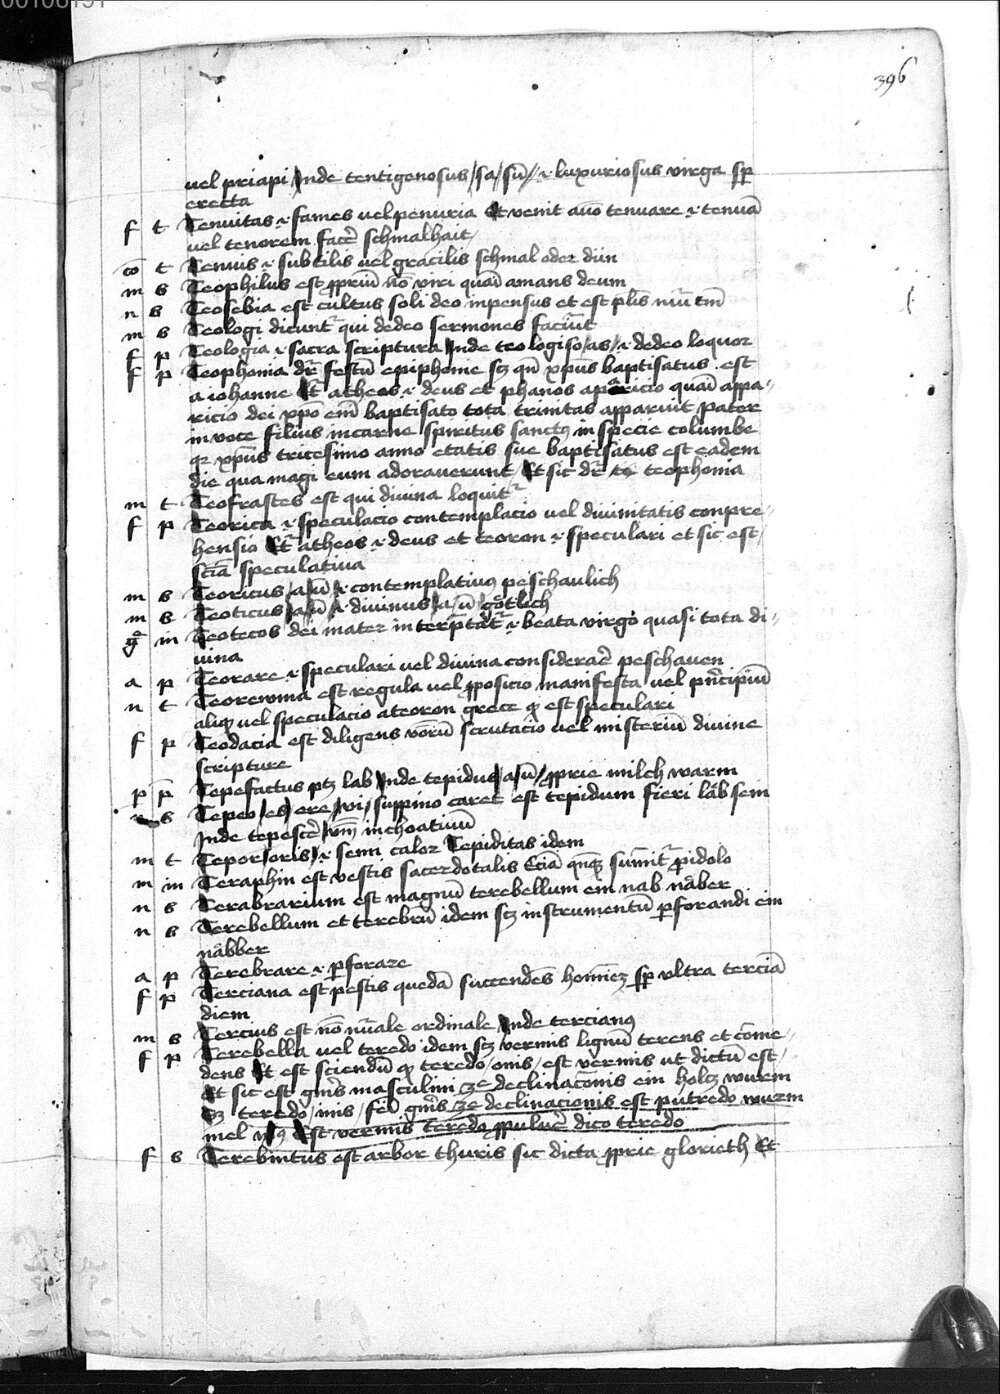 396
vel priapi Inde tentigenosus /sa/ sū/ ·i· luxuriosus virga sp̄
erecta
f t Tenuitas ·i· fames vel penuria Et venit a tenuare ·i· tenuā
vel tenorem facē schmalhait
cō t Tenuis ·i· subtilis vel gracilis schmal oder dün
m s Teophilus est ꝓpriū nō viri quasi amans deum
n s Teosebia est cultus soli deo inpensus et est pl̄is nūi tm̄
m s Teologi dicunt᷑ qui de deo sermones faciūt
f p Teologia ·i· sacra scriptura Inde teologiso/as/ ·i· de deo loquor
f p Teophonia dr̄ festū epiphanie scꝫ qn̄ xp̄us baptisatus est
a iohanne Et᷑ a theos ·i· deus et phanos aparicio quasi appa-
ricio dei xp̄o em̄ baptisato tota trinitas apparuit pater
in voce filius in carne spiritus sanctꝰ in specie columbe
qꝛ xp̄us tricesimo anno etatis sue baptisatus est eadem
die qua magi eum adoraverunt Et sic dr̄ te teophonia
m t Teofrastes est qui divina loquit᷑
f p Teorica ·i· speculacio contemplacio vel divinitatis conpre-
hensio Et᷑ a theos ·i· deus et teoron ·i· speculari et sic est/
sciā speculativa
m s Teoricus /a/ū/ ·i· contemplativꝰ peschaulich
m s Teoticus /a/ū/ ·i· divinus /a/ū götlich
g m Teotecos dei mater interp̄tat᷑ ·i· beata virgo quasi tota di-
vina
a p Teorare ·i· speculari vel divina considerare peschawen
n t Teorewma est regula vel ꝓposicio manifesta vel pn̄cipiū
aliqͦ vel speculacio a teoron grece qͥ est speculari
f p Teodacia est diligens scrutacio vel misteriū divine
scripture
p p Tepefactus ptꝫ lab Inde tepidus /a/ū/ ꝓprie milch warm
n s Tepeo /es/ ere /ui/ suppino caret est tepidum fieri lab sein
Inde tepescē vm̄ inchoativū
m t Tepor /oris/ ·i· semi calor Tepiditas idem
m m Teraphin est vestis sacerdotalis Eciā qn̄qꝫ sumit᷑ ꝓ idolo
n s Terabrarium est magnū terebellum ein nab näber
n s Terebellum et terebrū idem scꝫ instrumentū ꝑforandi ein
näbber
a p Terebrare ·i· ꝑforare
f p Terciana est pestis quedā succendēs homineꝫ sp̄ ultra terciā
diem
m s Tercius est nō nūale ordinale Inde tercianꝰ
f p Terebella vel teredo idem scꝫ vermis lignū terens et come-
dens Et est sciendū qͦ teredo /onis/ est vermis ut dictū est/
Et sic est gn̄is masculini 3e declinac̄onis ein holcz wurm
Sꝫ teredo /inis/ fe gn̄is 3e declinacionis est putredo wurm
mel Est vermis teredo ꝓ pulvē dico teredo
f s Terebintus est arbor thuris sic dicta ꝓprie glorieth Et